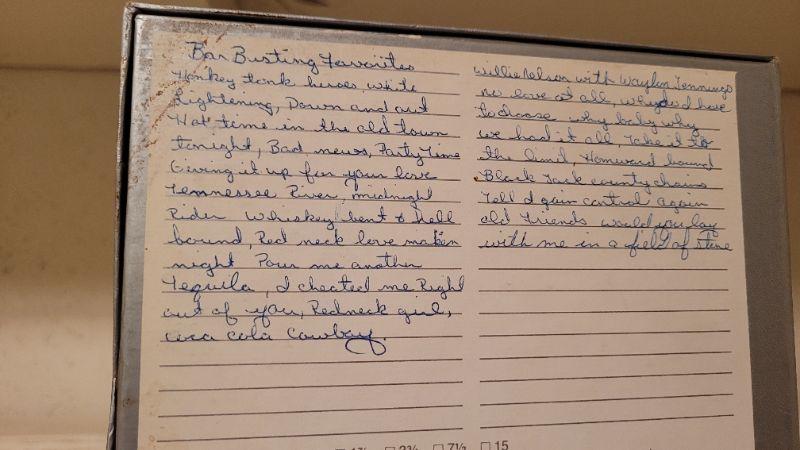 Bar Busting Favorites
Honkey tonk heros, white
Lightening, Down and out
Hot time in the old town
tonight, Bad news, Party Time
Giving it up for your love
Tennessee River, midnight
Rider Whiskey bent & hell
bound, Red neck love maken
night Pour me another
Tequila, I cheated me Right
out of you, Redneck girl,
coca cola Cowboy
Willie Nelson with Waylon Jennings
no love at all, why do I have
to choose why baby why
we had it all, Take it to
the limit Homeward bound
Black Jack county chains
Till I gain control again
old Friends would you lay
with me in a field of Stone
7½ 15